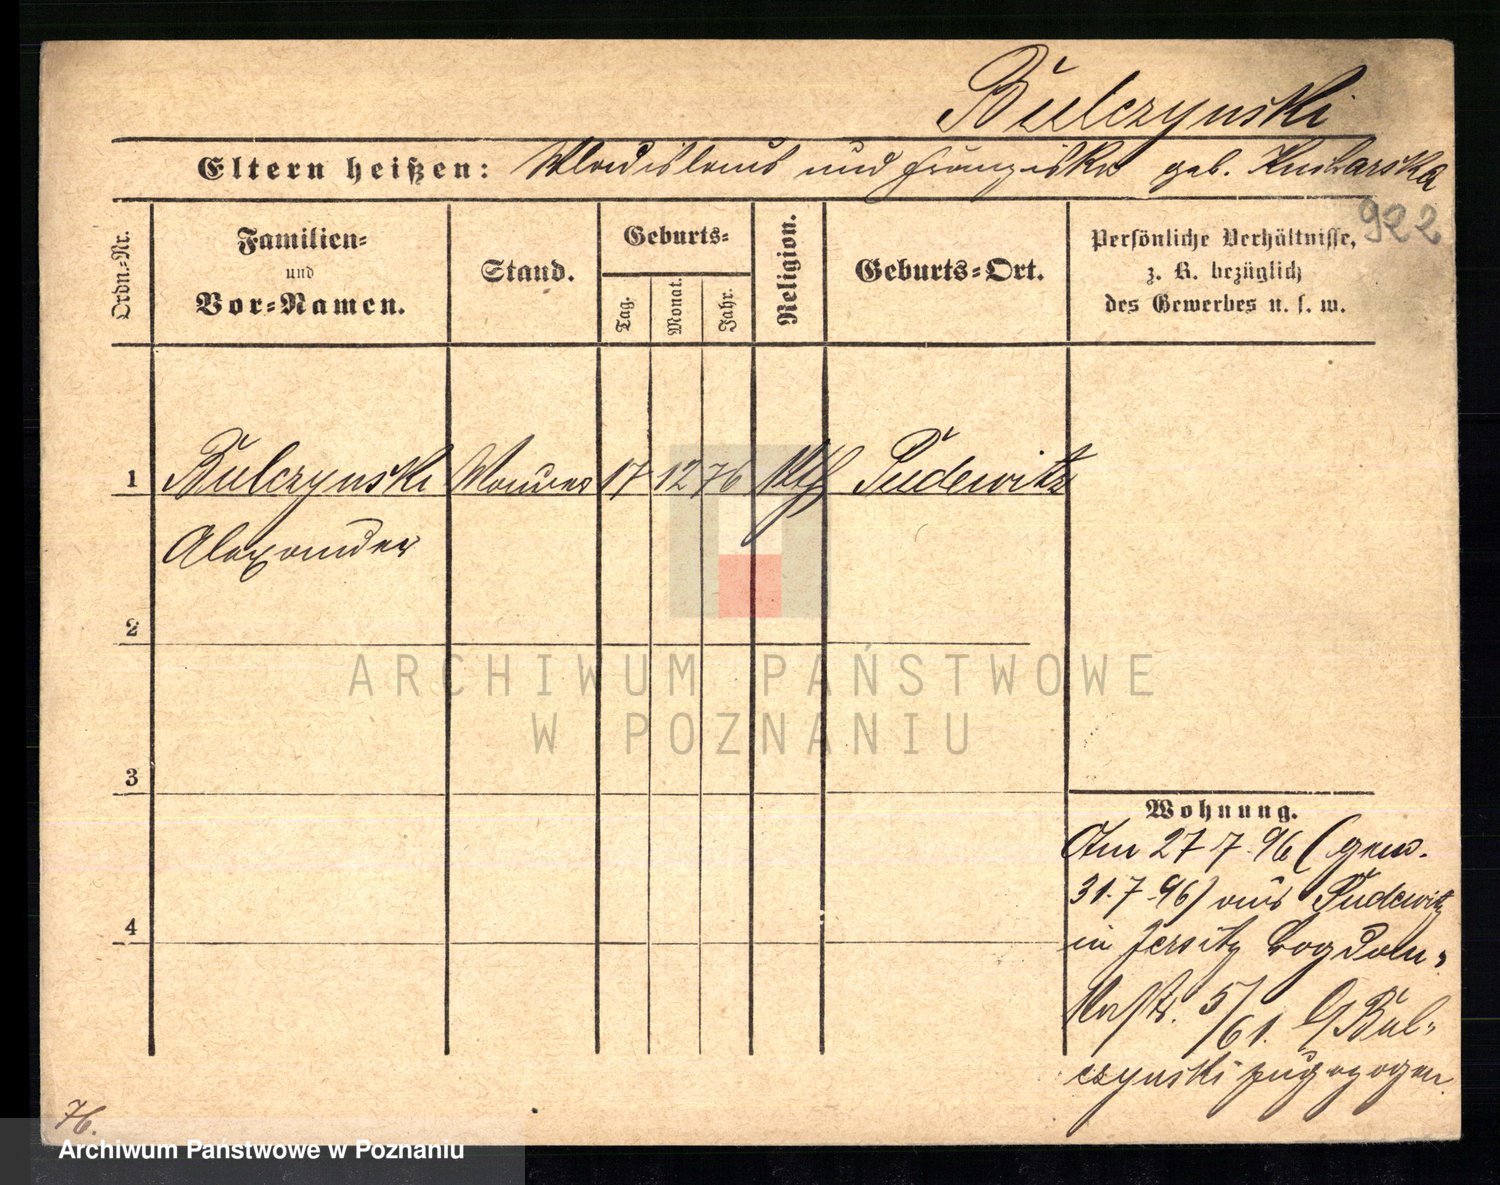 Bulczynski
Eltern heißen: Wladislaus und Franziska geb. Kucharska
922
Ordn.-Nr.
Familien- und Vor-Namen.
Stand.
Geburts-
Tag.
Monat.
Jahr.
Religion.
Geburts-Ort.
Persönliche Verhältnisse,
z. B. bezüglich
des Gewerbes u. s. w.
1 Bulczynski Maurer 17 12 76 kth Pudewitz
Alexander
2
3
4
Wohnung.
Am 27 7. 96 (gem.
31.7.96) aus Pudewitz
in Jersitz
5/61. b/ Bul-
czynski zugezogen.
76.
ARCHIWUM PAŃSTWOWE
W POZNANIU
Archiwum Państwowe w Poznaniu